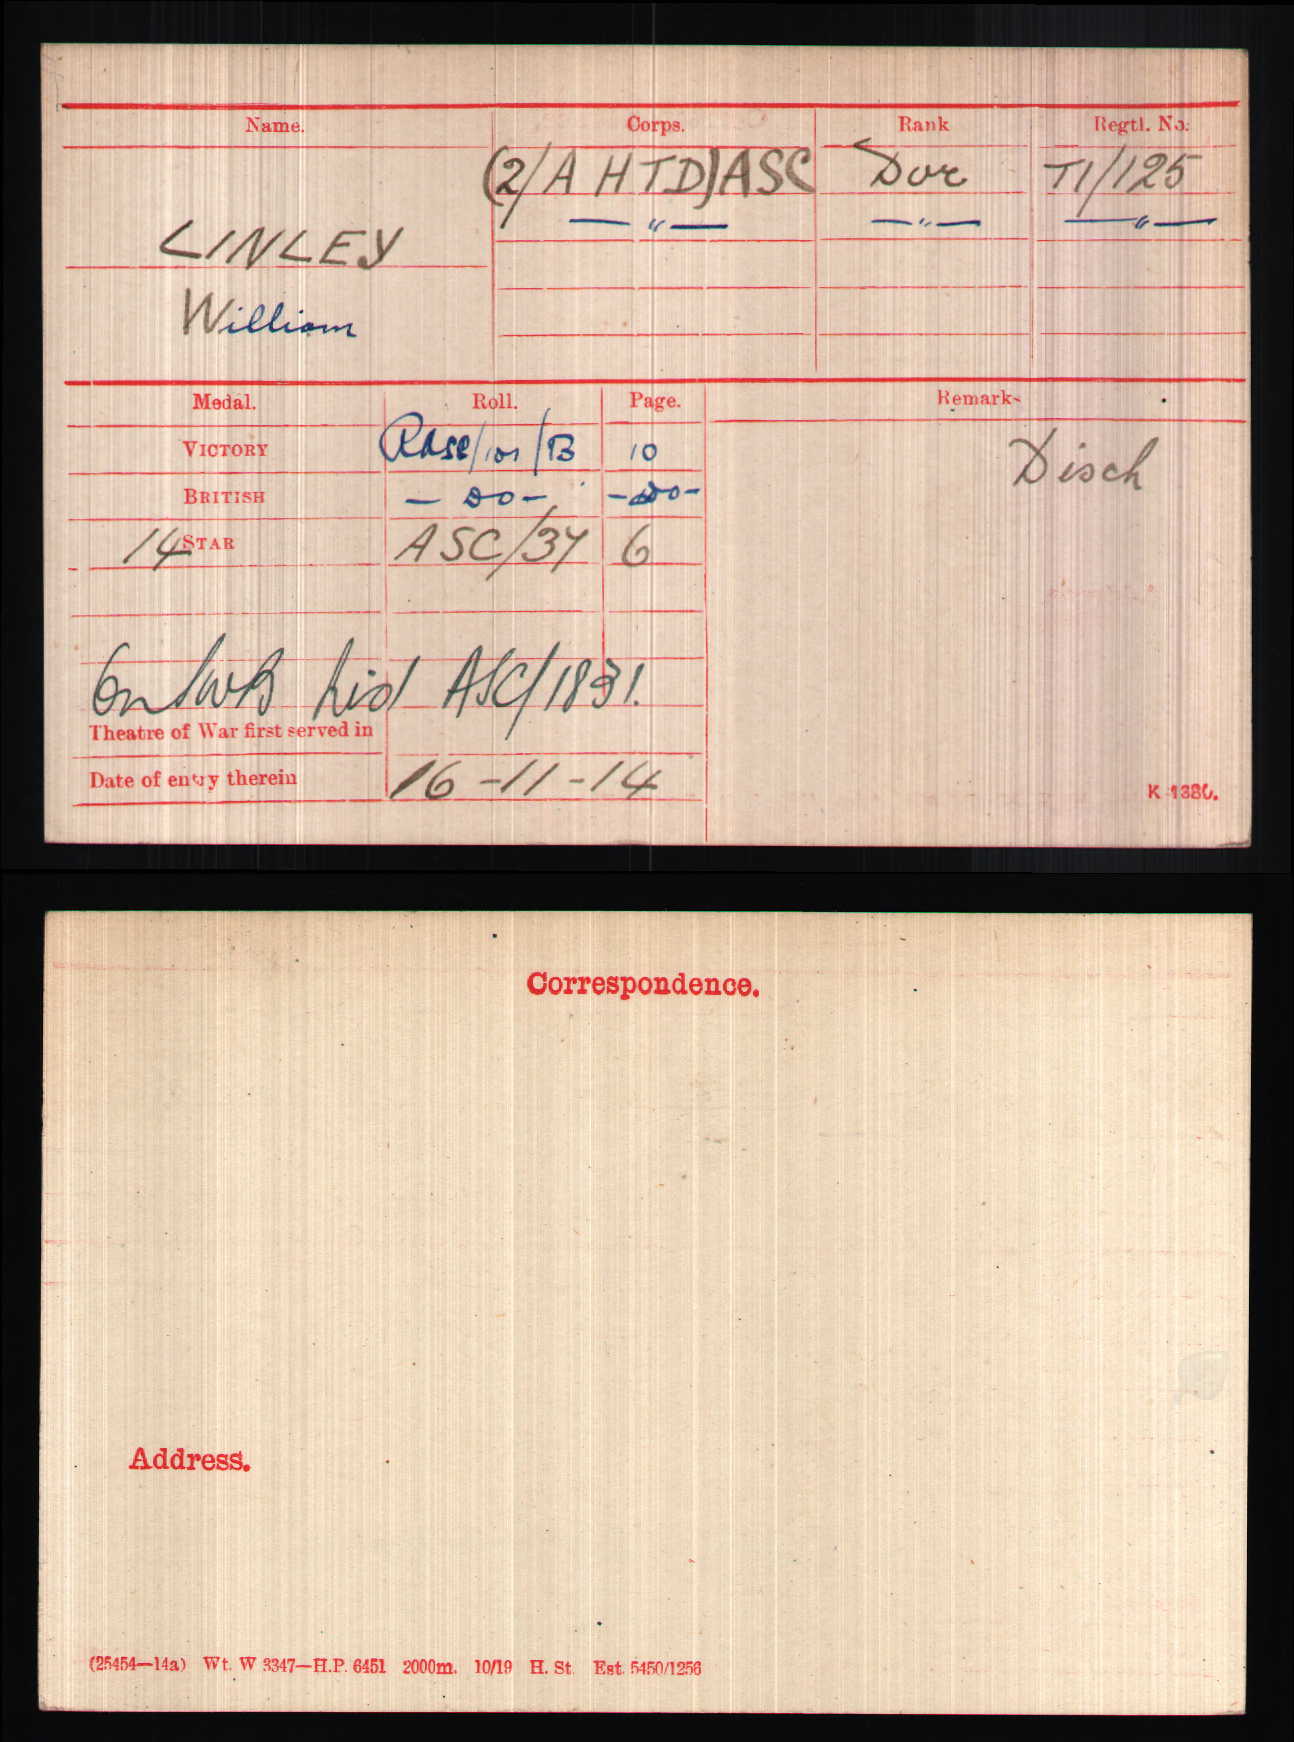 Name. Corps. Rank Regtl. No.
(2/A H T D) ASC Dvr T1/125
LINLEY — " — — " — — " —
William
Medal. Roll. Page. Remarks
VICTORY RASC/101/B 10 Disch
BRITISH — DO — — DO —
14 STAR ASC/3Y 6
On SWB list ASC/1831.
Theatre of War first served in
Date of entry therein 16-11-14
K 1380.
Correspondence.
Address.
(25454—14a) Wt. W 3347—H.P. 6451 2000m. 10/19 H. St. Est. 5450/1256